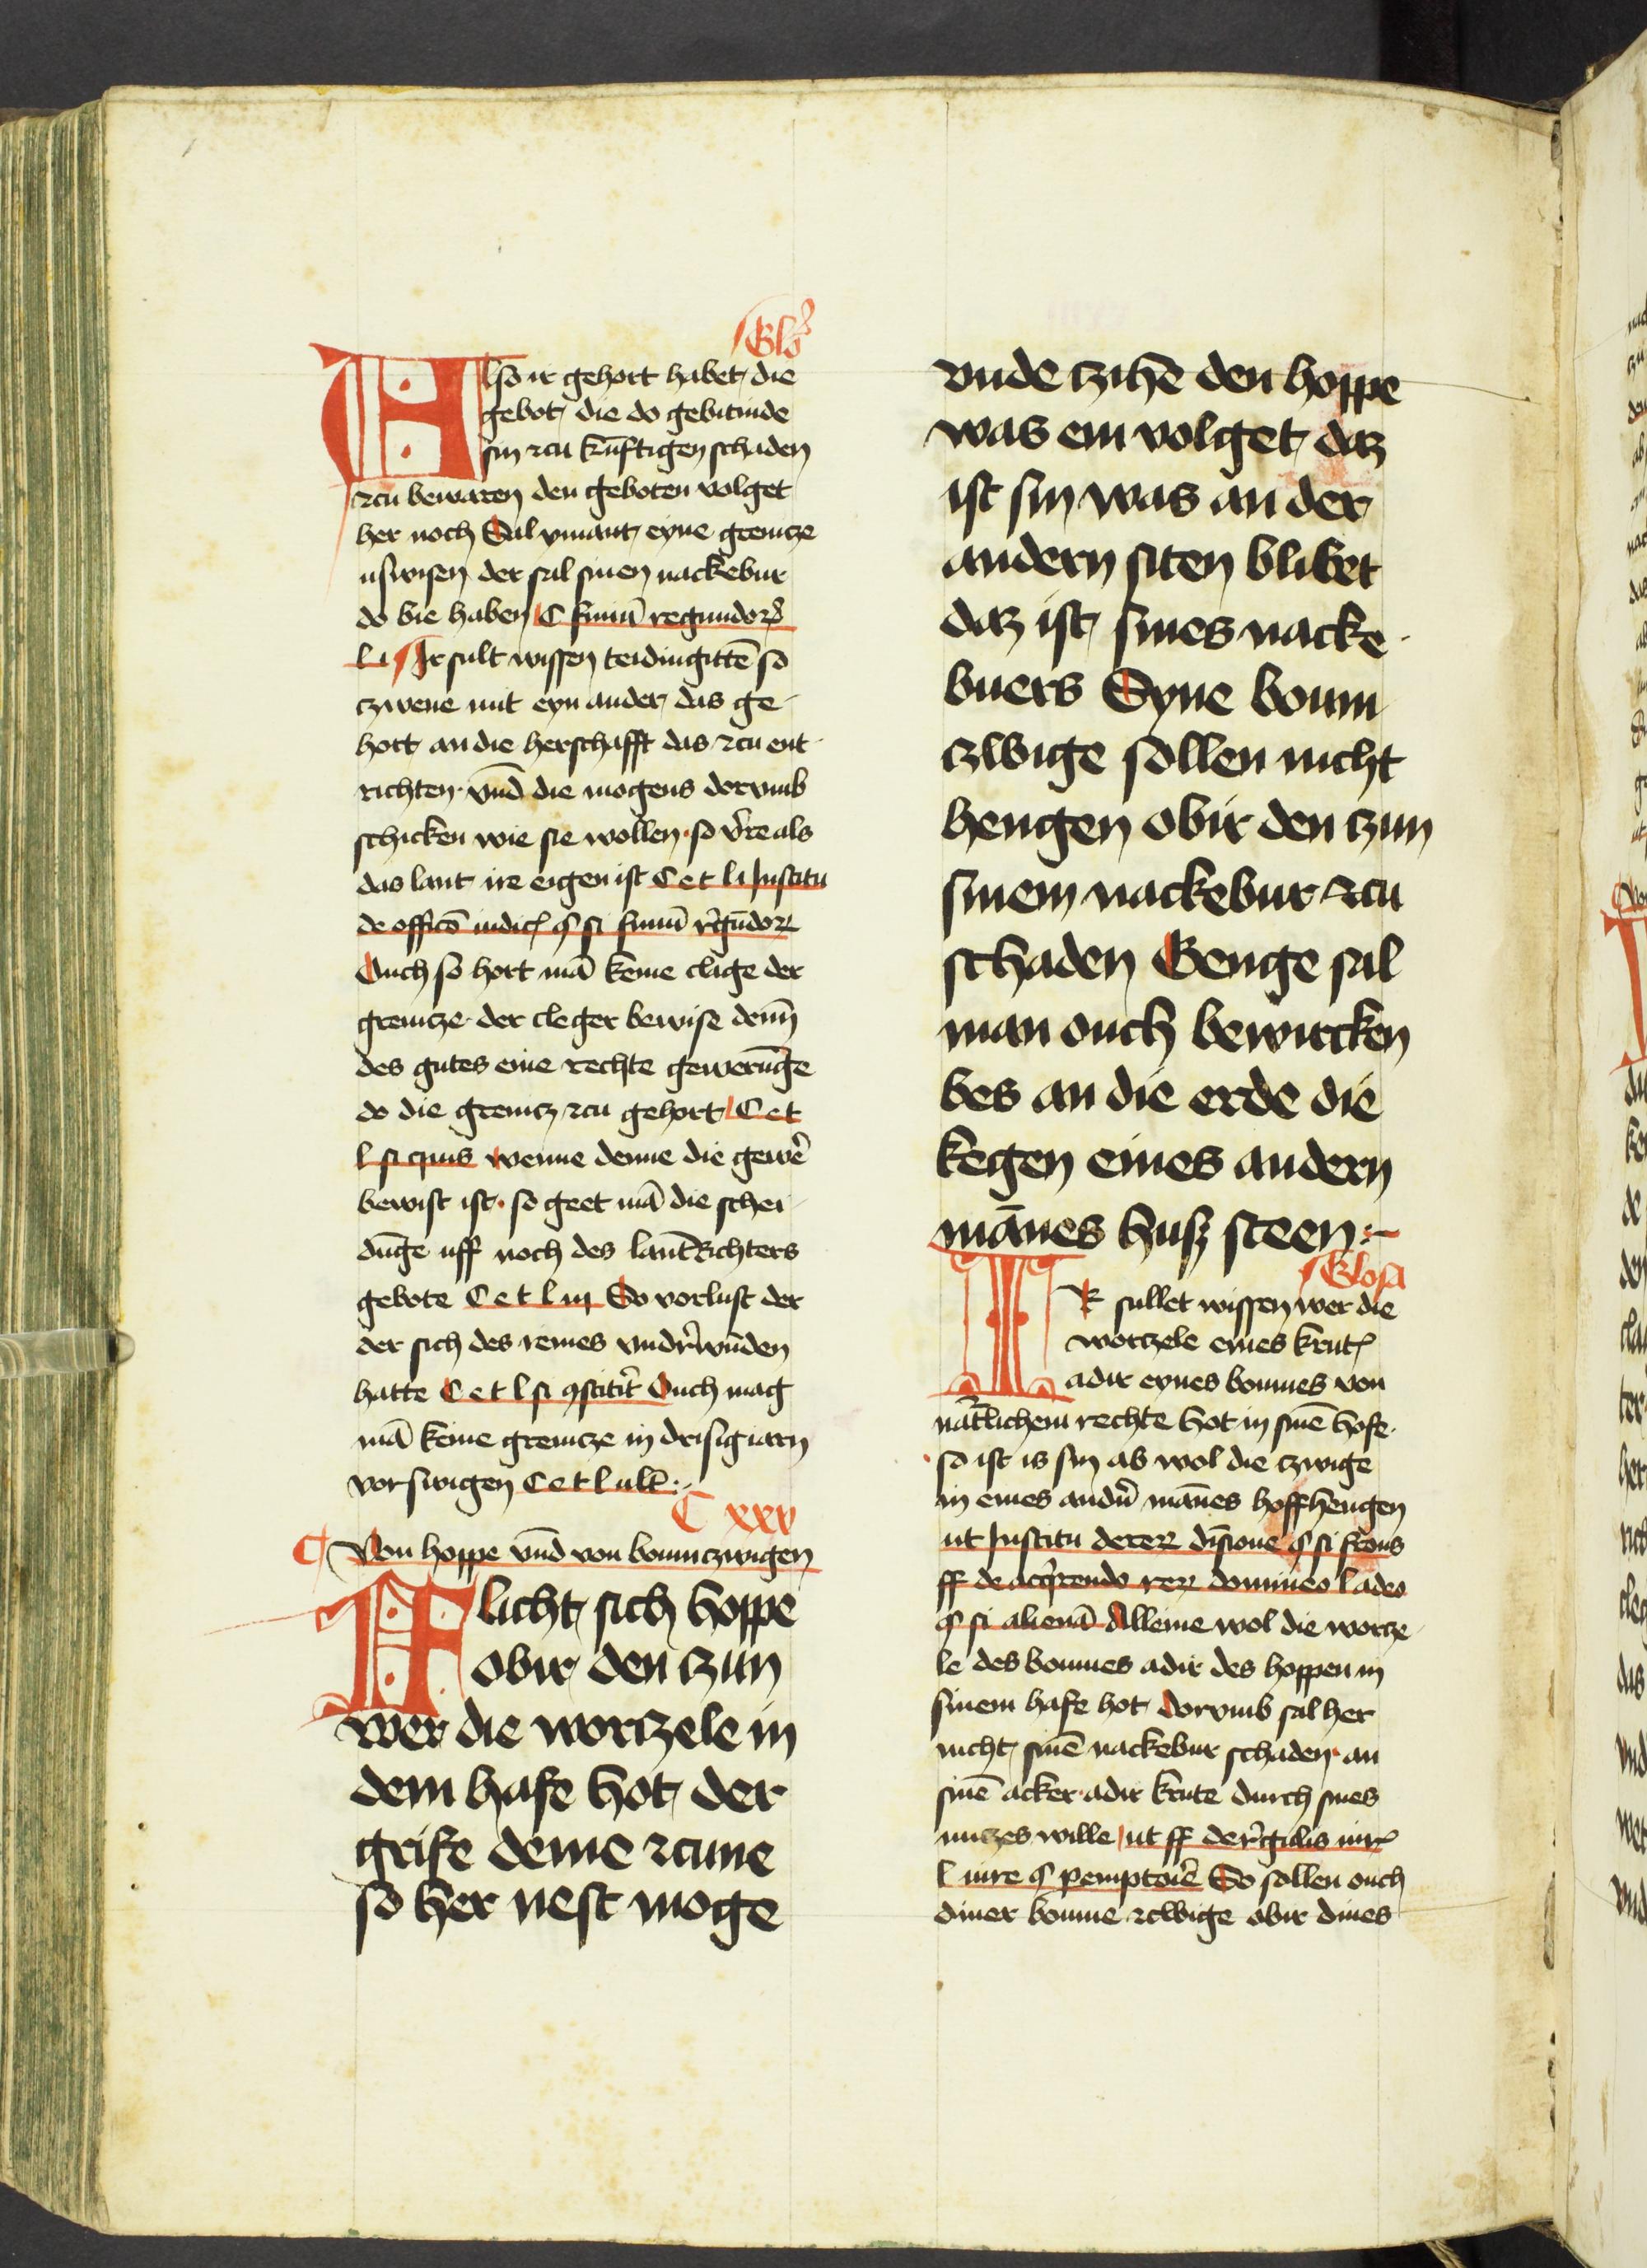 Glo
Also ir gehort habet die
gebot die do gebitinde
sin zcu kunftigen schaden
zcu bewaren den geboten volget
her noch Sal ymant eyne grenicze
uswisen der sal sinen nackebur
do bie haben C finiū regundorꝫ
l i Ir sult wissen teidingittē so
czwene mit eyn ander das ge
hort an die herschafft das zcu ent
richten vn̄d die mogens dorvmb
schicken wie sie wollen so v̓re als
das lant ire eigen ist C et l i Institu
de officō iudicꝭ ꝯ si finiū r̓gūdorꝝ
Ouch so hort mā keine clage der
grenicze der cleger bewise deñ
des gutes eine rechte gewerūge
do die grenicz zcu gehort C et
l si quis wenne denne die gewē
bewist ist so geet mā die schei
dūge uff noch des lant Richters
gebote C et l iii So vorlust der
der sich des reines vndr̓wūden
hatte C et l si ꝯstitit̓ Ouch mag
mā keine grenicze in drisig iarn
vorswigen C et l ult̄
C xxv
Von hoppe vn̄d von boumczwigen
Flicht sich hoppe
obir den czun
wer die worczele in
dem hafe hot der
grife deme zcune
so her nest moge
vnde czihē den hoppe
was em volget daz
ist sin was an der
andern siten blibet
daz ist sines nacke
buers Syne boum
czwige sollen nicht
hengen obir den czun
sinem nackebur zcu
schaden Genge sal
man ouch bewircken
bes an die erde die
kegen eines andern
mānes husz steen
Glosa
IR sullet wissen wer die
worczele eines krutꝭ
adir eynes boumes von
nat̓lichem rechte hot in sinē hofe
so ist is sin ab wol die czwige
in eines andn̄ mānes hoff hengen
ut Institu de rerꝝ diuisione ꝯ si fr̄ons
ff de acq̓rendo rerꝝ dominio l adeo
ꝯ si alienā Alleine wol die worcze
le des boumes adir des hoppen in
sinem hafe hot dorvmb sal her
nicht sinē nackebur schaden an
sinē acker adir krute durch sines
nuczes wille ut ff de r̓gulis iurꝭ
l iure ꝯ pemptorē So sollen ouch
diner boume zcwige obir dines